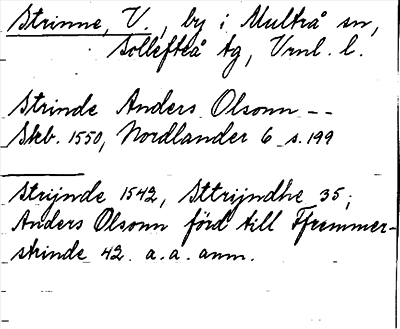 Strinne, V., by i Multrå sn,
Sollefteå tg, Vrnl. l.
Strinde Anders Olsonn --
Skb. 1550, Nordlander 6 s. 199
Strijnde 1542, Sttrijndhe 35;
Anders Olsonn förd till Ffremmer-
strinde 42. a. a. anm.